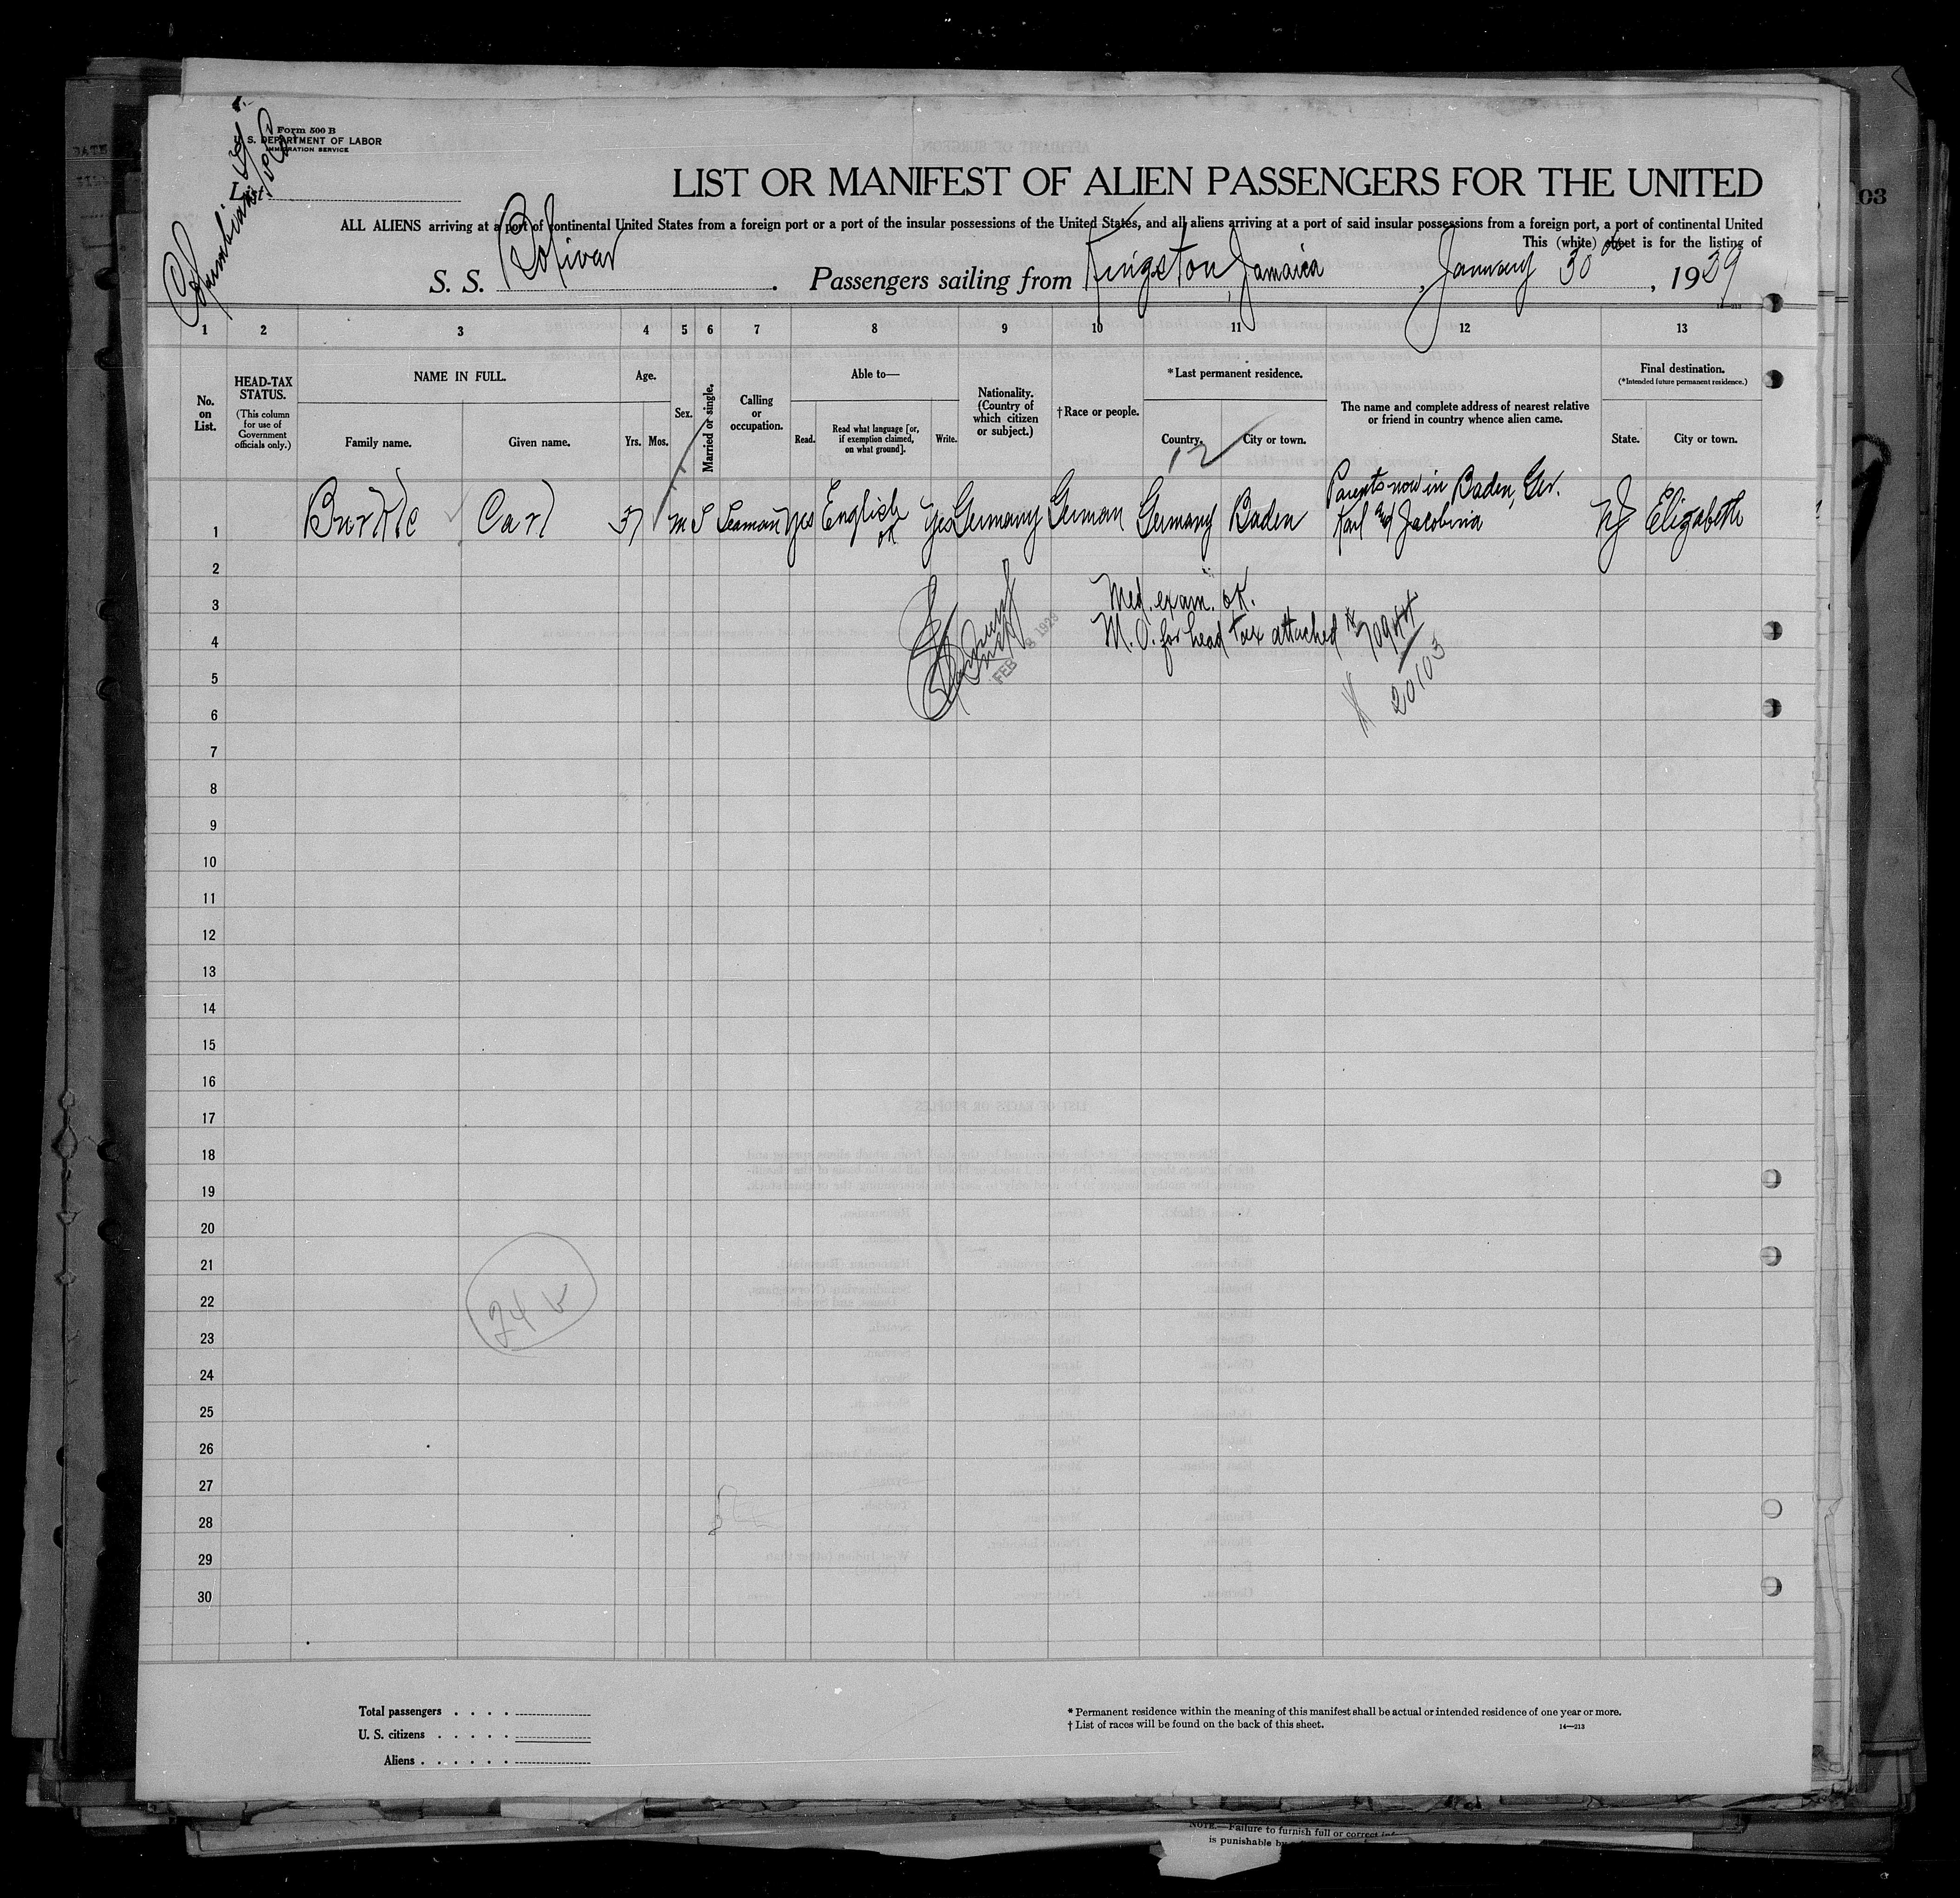 Form 500 B
U. S. DEPARTMENT OF LABOR
IMMIGRATION SERVICE
List
LIST OR MANIFEST OF ALIEN PASSENGERS FOR THE UNITED
ALL ALIENS arriving at a port of continental United States from a foreign port or a port of the insular possessions of the United States, and all aliens arriving at a port of said insular possessions from a foreign port, a port of continental United
This (white) sheet is for the listing of
S. S. Bolivar. Passengers sailing from Kingston, Jamaica, January 30th, 1929
14—213
1 2 3 4 5 6 7 8 9 10 11 12 13
No. on List.
HEAD-TAX STATUS.
(This column for use of Government officials only.)
NAME IN FULL.
Family name. Given name.
Age.
Yrs. Mos.
Sex.
Married or single.
Calling or occupation.
Able to—
Read. Read what language [or, if exemption claimed, on what ground]. Write.
Nationality. (Country of which citizen or subject.)
†Race or people.
*Last permanent residence.
Country. City or town.
12
The name and complete address of nearest relative or friend in country whence alien came.
Final destination.
(*Intended future permanent residence.)
State. City or town.
Parents now in Baden, Ger.
1 Burkle Carl 37 m S Seaman yes English yes Germany German Germany Baden Karl and Jacobina NJ Elizabeth
ok
2
3 Med. exam. ok.
4 M. O. for head tax attached
FEB 8 1929
20103
5
6
7
8
9
10
11
12
13
14
15
16
17
18
19
20
21
22
24
23
24
25
26
27
28
29
30
Total passengers
U. S. citizens
Aliens
* Permanent residence within the meaning of this manifest shall be actual or intended residence of one year or more.
† List of races will be found on the back of this sheet.
14—213
03
NOTE.—Failure to furnish full or correct
is punishable by